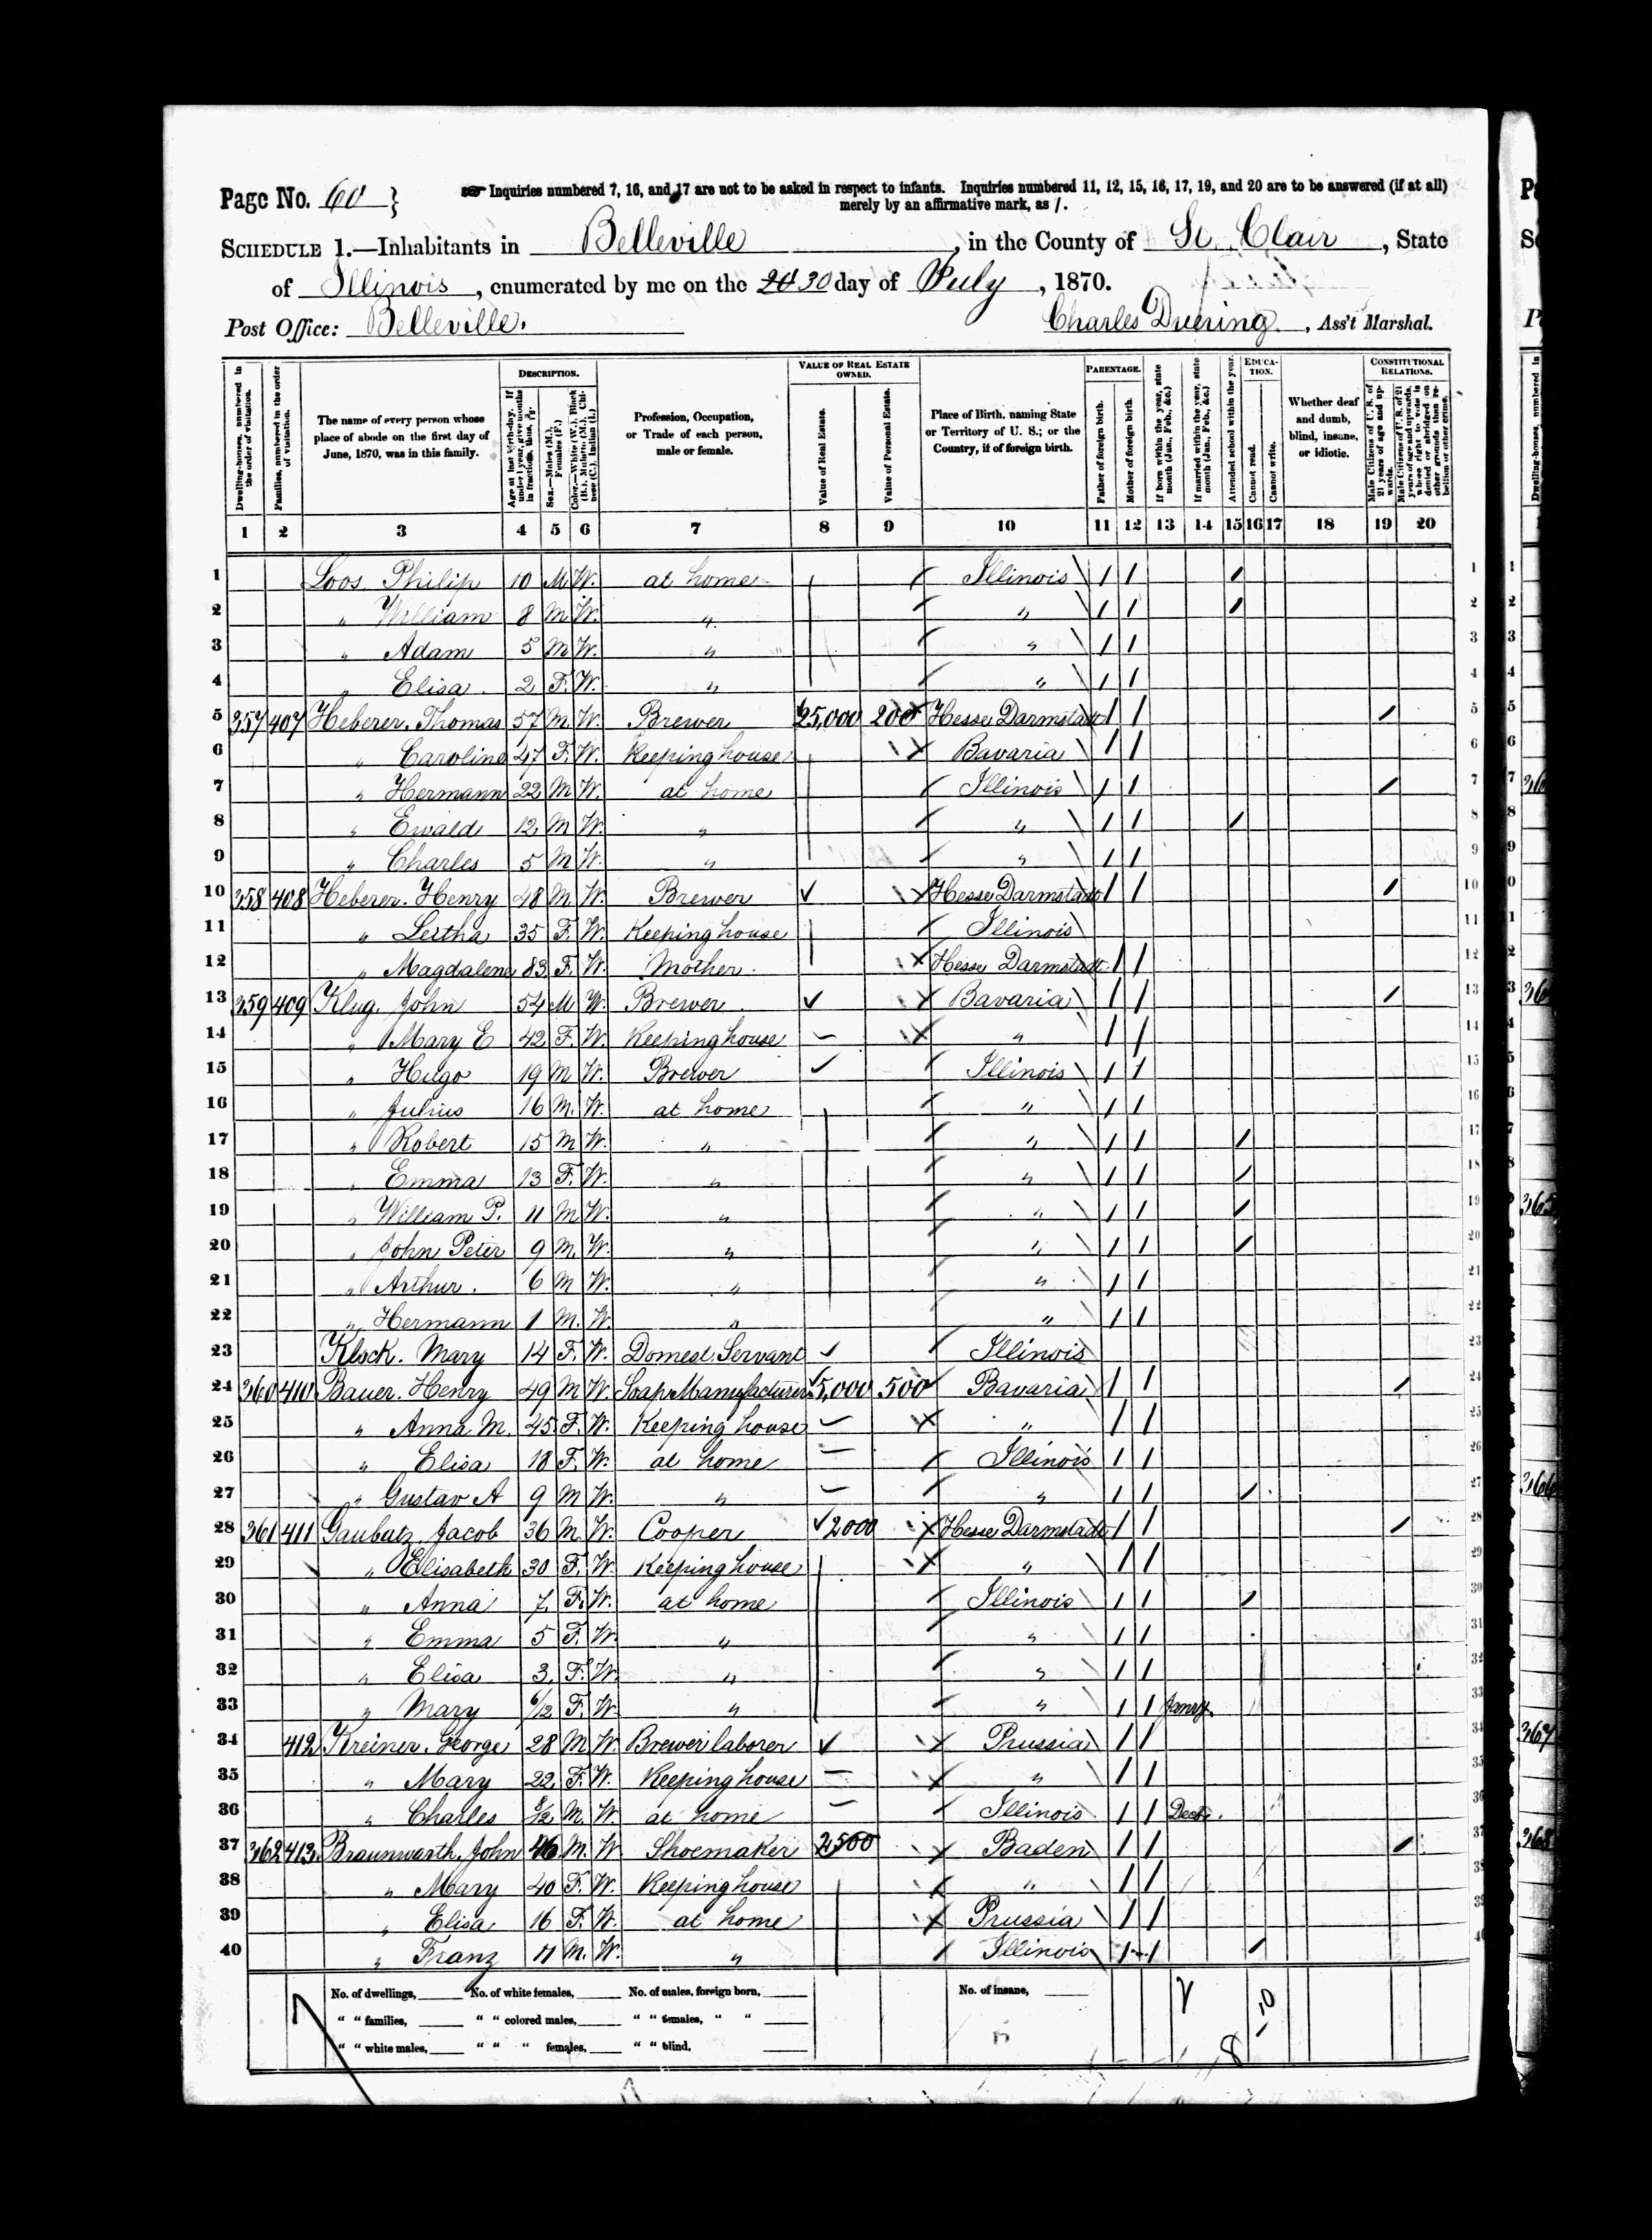 Page No. 60 } Inquiries numbered 7, 16, and 17 are not to be asked in respect to infants. Inquiries numbered 11, 12, 15, 16, 17, 19, and 20 are to be answered (if at all)
merely by an affirmative mark, as /.
SCHEDULE 1.—Inhabitants in Belleville, in the County of St. Clair, State
of Illinois, enumerated by me on the 30 day of July, 1870.
Post Office: Belleville. Charles Duering, Ass't Marshal.
DESCRIPTION. VALUE OF REAL ESTATE OWNED. PARENTAGE. EDUCATION. CONSTITUTIONAL RELATIONS.
Dwelling-houses, numbered in the order of visitation.
Families, numbered in the order of visitation.
The name of every person whose place of abode on the first day of June, 1870, was in this family.
Age at last birth-day. If under 1 year, give months in fractions, thus,
Sex.—Males (M.), Females (F.)
Color.—White (W.), Black (B.), Mulatto (M.), Chinese (C.), Indian (I.)
Profession, Occupation, or Trade of each person, male or female.
Value of Real Estate.
Value of Personal Estate.
Place of Birth, naming State or Territory of U. S.; or the Country, if of foreign birth.
Father of foreign birth.
Mother of foreign birth.
If born within the year, state month (Jan., Feb., &c.)
If married within the year, state month (Jan., Feb., &c.)
Attended school within the year.
Cannot read.
Cannot write.
Whether deaf and dumb, blind, insane, or idiotic.
Male Citizens of U. S. of 21 years of age and upwards.
Male Citizens of U. S. of 21 years of age and upwards, whose right to vote is denied or abridged on other grounds than rebellion or other crime.
1 2 3 4 5 6 7 8 9 10 11 12 13 14 15 16 17 18 19 20
1 Loos. Philip 10 M W. at home / Illinois / / / 1
2 " William 8 M W. " / " / / / 2
3 " Adam 5 M W. " / " / / 3
4 " Elisa. 2 F. W. " / " / / 4
5 357 407 Heberer. Thomas 57 M. W. Brewer 25,000 200 Hesse Darmstadt / / / 5
6 " Caroline 47 F. W. Keeping house Bavaria / / 6
7 " Hermann 22 M W. at home / Illinois / / / 7
8 " Ewald 12 M W. " / " / / / 8
9 " Charles 5 M W. " / " / / 9
10 358 408 Heberer. Henry 48 M. W. Brewer Hesse Darmstadt / / / 10
11 " Lertha 35 F. W. Keeping house / Illinois 11
12 " Magdalena 83 F. W. Mother. Hesse Darmstadt / / 12
13 359 409 Klug. John 54 M W. Brewer. Bavaria / / / 13
14 " Mary E 42 F. W. Keeping house " / / 14
15 " Hugo 19 M W. Brewer / Illinois / / 15
16 " Julius 16 M. W. at home / " / / 16
17 " Robert 15 M W. " / " / / / 17
18 " Emma 13 F. W. " / " / / / 18
19 " William P. 11 M W. " / " / / / 19
20 " John Peter 9 M. W. " / " / / / 20
21 " Arthur. 6 M W. " / " / / 21
22 " Hermann 1 M. W. " / " / / 22
23 Klock. Mary 14 F. W. Domest. Servant / Illinois 23
24 360 410 Bauer. Henry 49 M W. Soap Manufacturer 5,000 500 Bavaria / / / 24
25 " Anna M. 45 F. W. Keeping house " / / 25
26 " Elisa 18 F. W. at home / Illinois / / 26
27 " Gustav A 9 M W. " / " / / / 27
28 361 411 Gaubatz. Jacob 36 M. W. Cooper 2000 Hesse Darmstadt / / / 28
29 " Elisabeth 30 F. W. Keeping house " / / 29
30 " Anna 7 F. W. at home / Illinois / / / 30
31 " Emma 5 F. W. " / " / / 31
32 " Elisa 3. F. W. " / " / / 32
33 " Mary 6/12 F. W. " / " / / Janry. 33
34 412 Kreiner. George 28 M. W. Brewer laborer Prussia / / 34
35 " Mary 22 F. W. Keeping house " / / 35
36 " Charles 8/12 M. W. at home / Illinois / / Decbr. 36
37 362 413 Braunwarth. John 46 M. W. Shoemaker 2500 Baden / / / 37
38 " Mary 40 F. W. Keeping house " / / 38
39 " Elisa 16 F. W. at home Prussia / / 39
40 " Franz 11 M. W. " / Illinois / / / 40
No. of dwellings, No. of white females, No. of males, foreign born, No. of insane,
" " families, " " colored males, " " females, " "
" " white males, " " " females, " " blind,
8 10